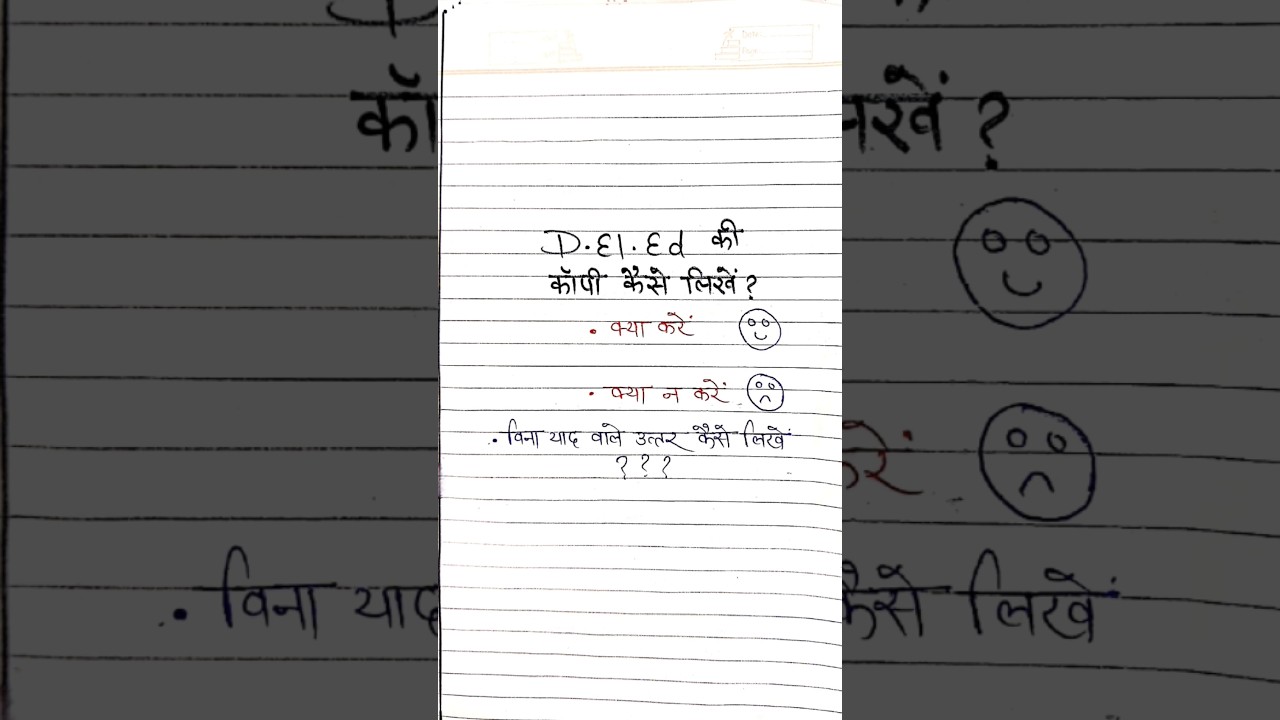 D.El.Ed की
कॉपी कैसे लिखें?
• क्या करें
• क्या न करें
• बिना याद वाले उत्तर कैसे लिखें
???